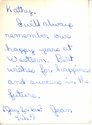 Kathy,
I will always
remember our
happy years at
Western. Best
wishes for happiness
and success in the
future.
Jean